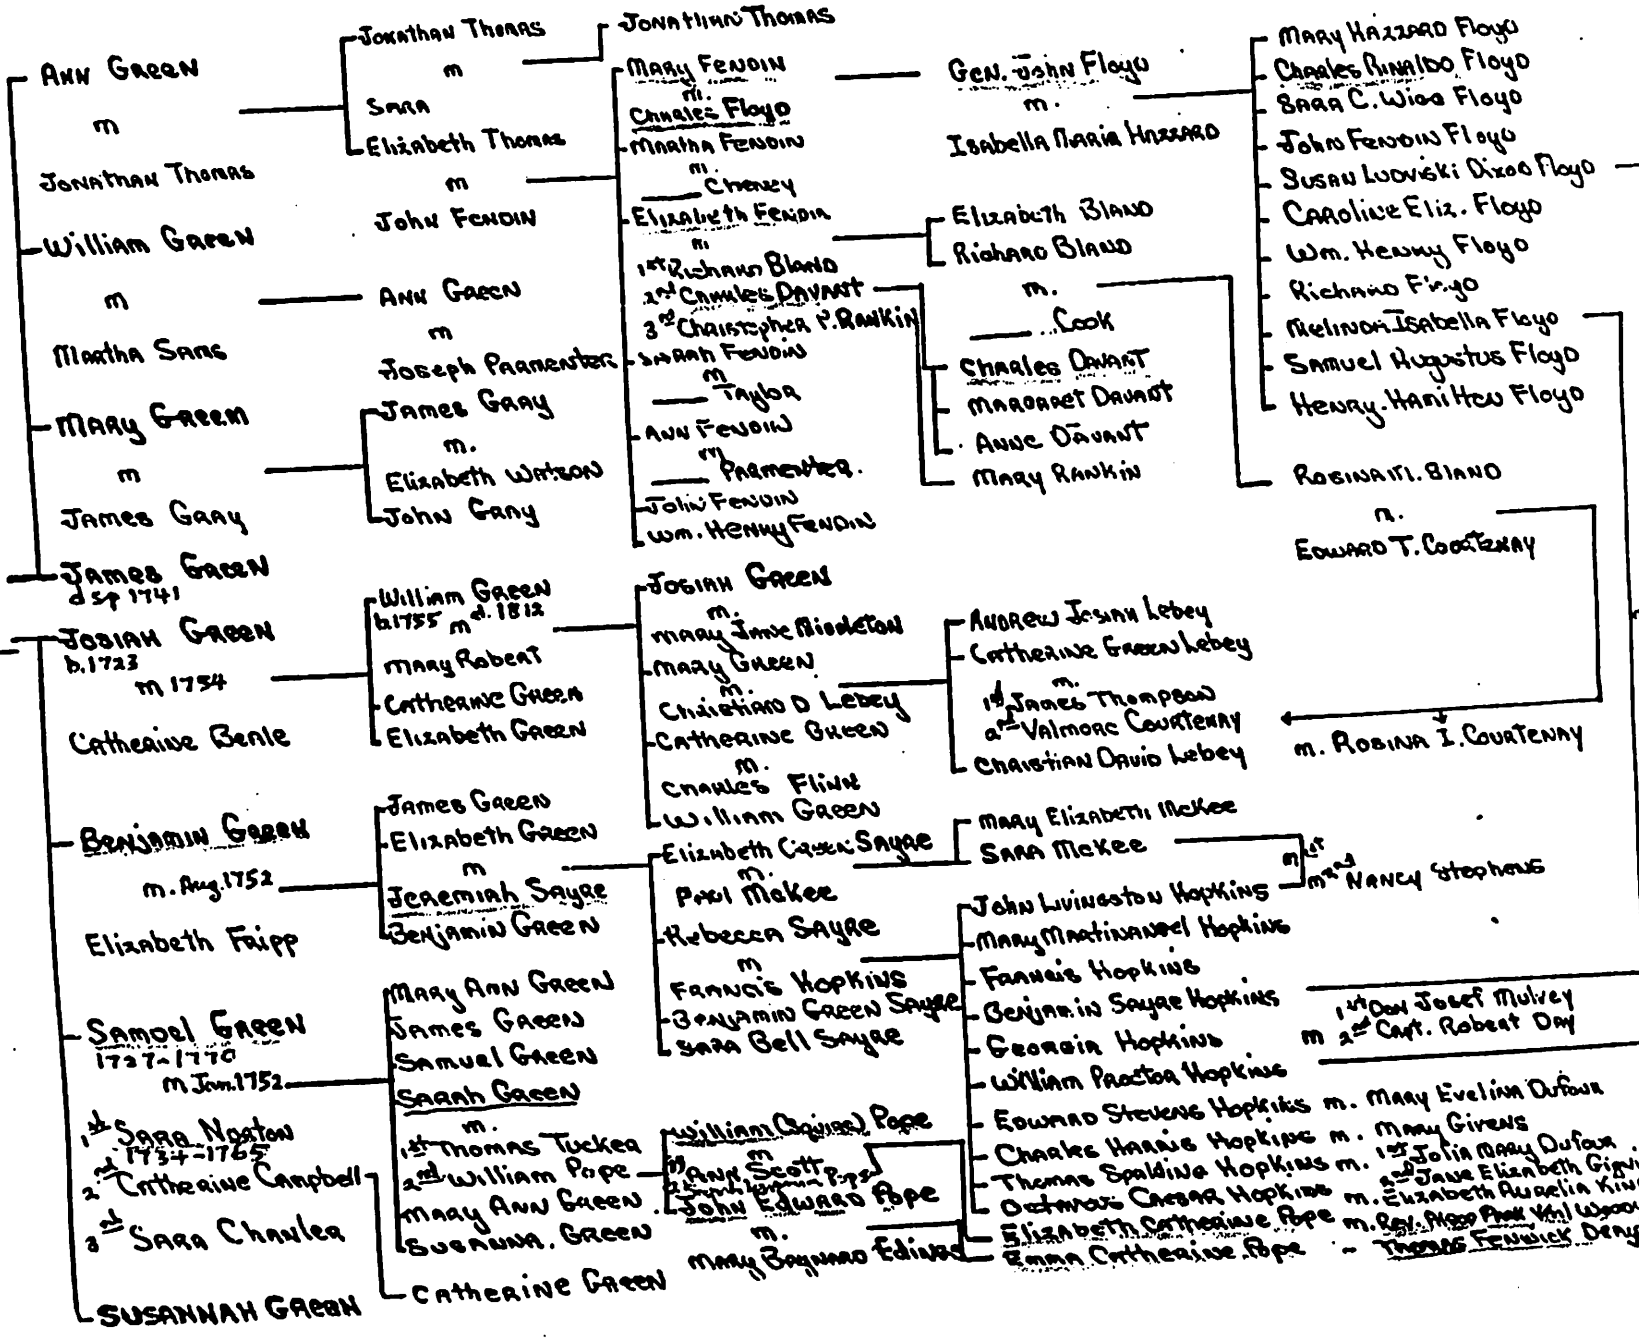 Ann Green
m
Jonathan Thomas
William Green
m
Martha Sams
Mary Green
m
James Gray
James Green
d sp 1741
Josiah Green
b. 1723
m 1754
Catherine Beale
Benjamin Green
m. Aug. 1752
Elizabeth Fripp
Samuel Green
1727-1770
m Jan. 1752
1st Sara Norton
1734-1765
2nd Catherine Campbell
3rd Sara Chanler
Susannah Green
Jonathan Thomas
m
Sara
Elizabeth Thomas
m
John Fendin
Ann Green
m
Joseph Parmenter
James Gray
m.
Elizabeth Watson
John Gray
William Green
b. 1755 d. 1812
m
Mary Robert
Catherine Green
Elizabeth Green
James Green
Elizabeth Green
m
Jeremiah Sayre
Benjamin Green
Mary Ann Green
James Green
Samuel Green
Sarah Green
m.
1st Thomas Tucker
2nd William Pope
Mary Ann Green
Susanna. Green
Catherine Green
Jonathan Thomas
Mary Fendin
m.
Charles Floyd
Martha Fendin
m.
Cheney
Elizabeth Fendin
m
1st Richard Bland
2nd Charles Davant
3rd Christopher P. Rankin
Sarah Fendin
m
Taylor
Ann Fendin
m
Parmenter.
John Fendin
Wm. Henry Fendin
Josiah Green
m.
Mary Jane Middleton
Mary Green
m.
Christian D Lebey
Catherine Green
m.
Charles Flinn
William Green
Elizabeth Green Sayre
m.
Paul McKee
Rebecca Sayre
m
Francis Hopkins
Benjamin Green Sayre
Sara Bell Sayre
William (Squire) Pope
m
1st Ann Scott
John Edward Pope
m.
Mary Baynard Edings
Gen. John Floyd
m.
Isabella Maria Hazzard
Elizabeth Bland
Richard Bland
m.
Cook
Charles Davant
Margaret Davant
Anne Davant
Mary Rankin
Andrew Josiah Lebey
Catherine Green Lebey
m.
1st James Thompson
2nd Valmore Courtenay
Christian David Lebey
m. Rosina I. Courtenay
Mary Elizabeth McKee
Sara McKee
m 1st
John Livingston Hopkins m 2nd Nancy Stephens
Mary Martinangel Hopkins
Francis Hopkins
Benjamin Sayre Hopkins
Georgia Hopkins m 1st Don Josef Mulvey
2nd Capt. Robert Day
William Proctor Hopkins
Edward Stevens Hopkins m. Mary Evelina Dufour
Charles Harris Hopkins m. Mary Givens
Thomas Spalding Hopkins m. 1st Julia Mary Dufour
2nd Jane Elizabeth
Octavous Caesar Hopkins m. Elizabeth Aurelia
Elizabeth Catherine Pope m. Rev.
Emma Catherine Pope - Thomas Fenwick
Mary Hazzard Floyd
Charles Rinaldo Floyd
Sara C. Wigg Floyd
John Fendin Floyd
Susan Ludviski Dixon Floyd
Caroline Eliz. Floyd
Wm. Henry Floyd
Richard Floyd
Melinda Isabella Floyd
Samuel Augustus Floyd
Henry. Hamilton Floyd
Rosina M. Bland
m.
Edward T. Courtenay